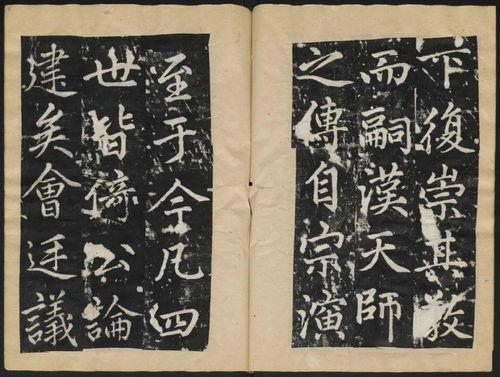 下復崇其教
而嗣漢天師
之傳自宗演
至于今凡四
世皆倚公論
建矣會廷議